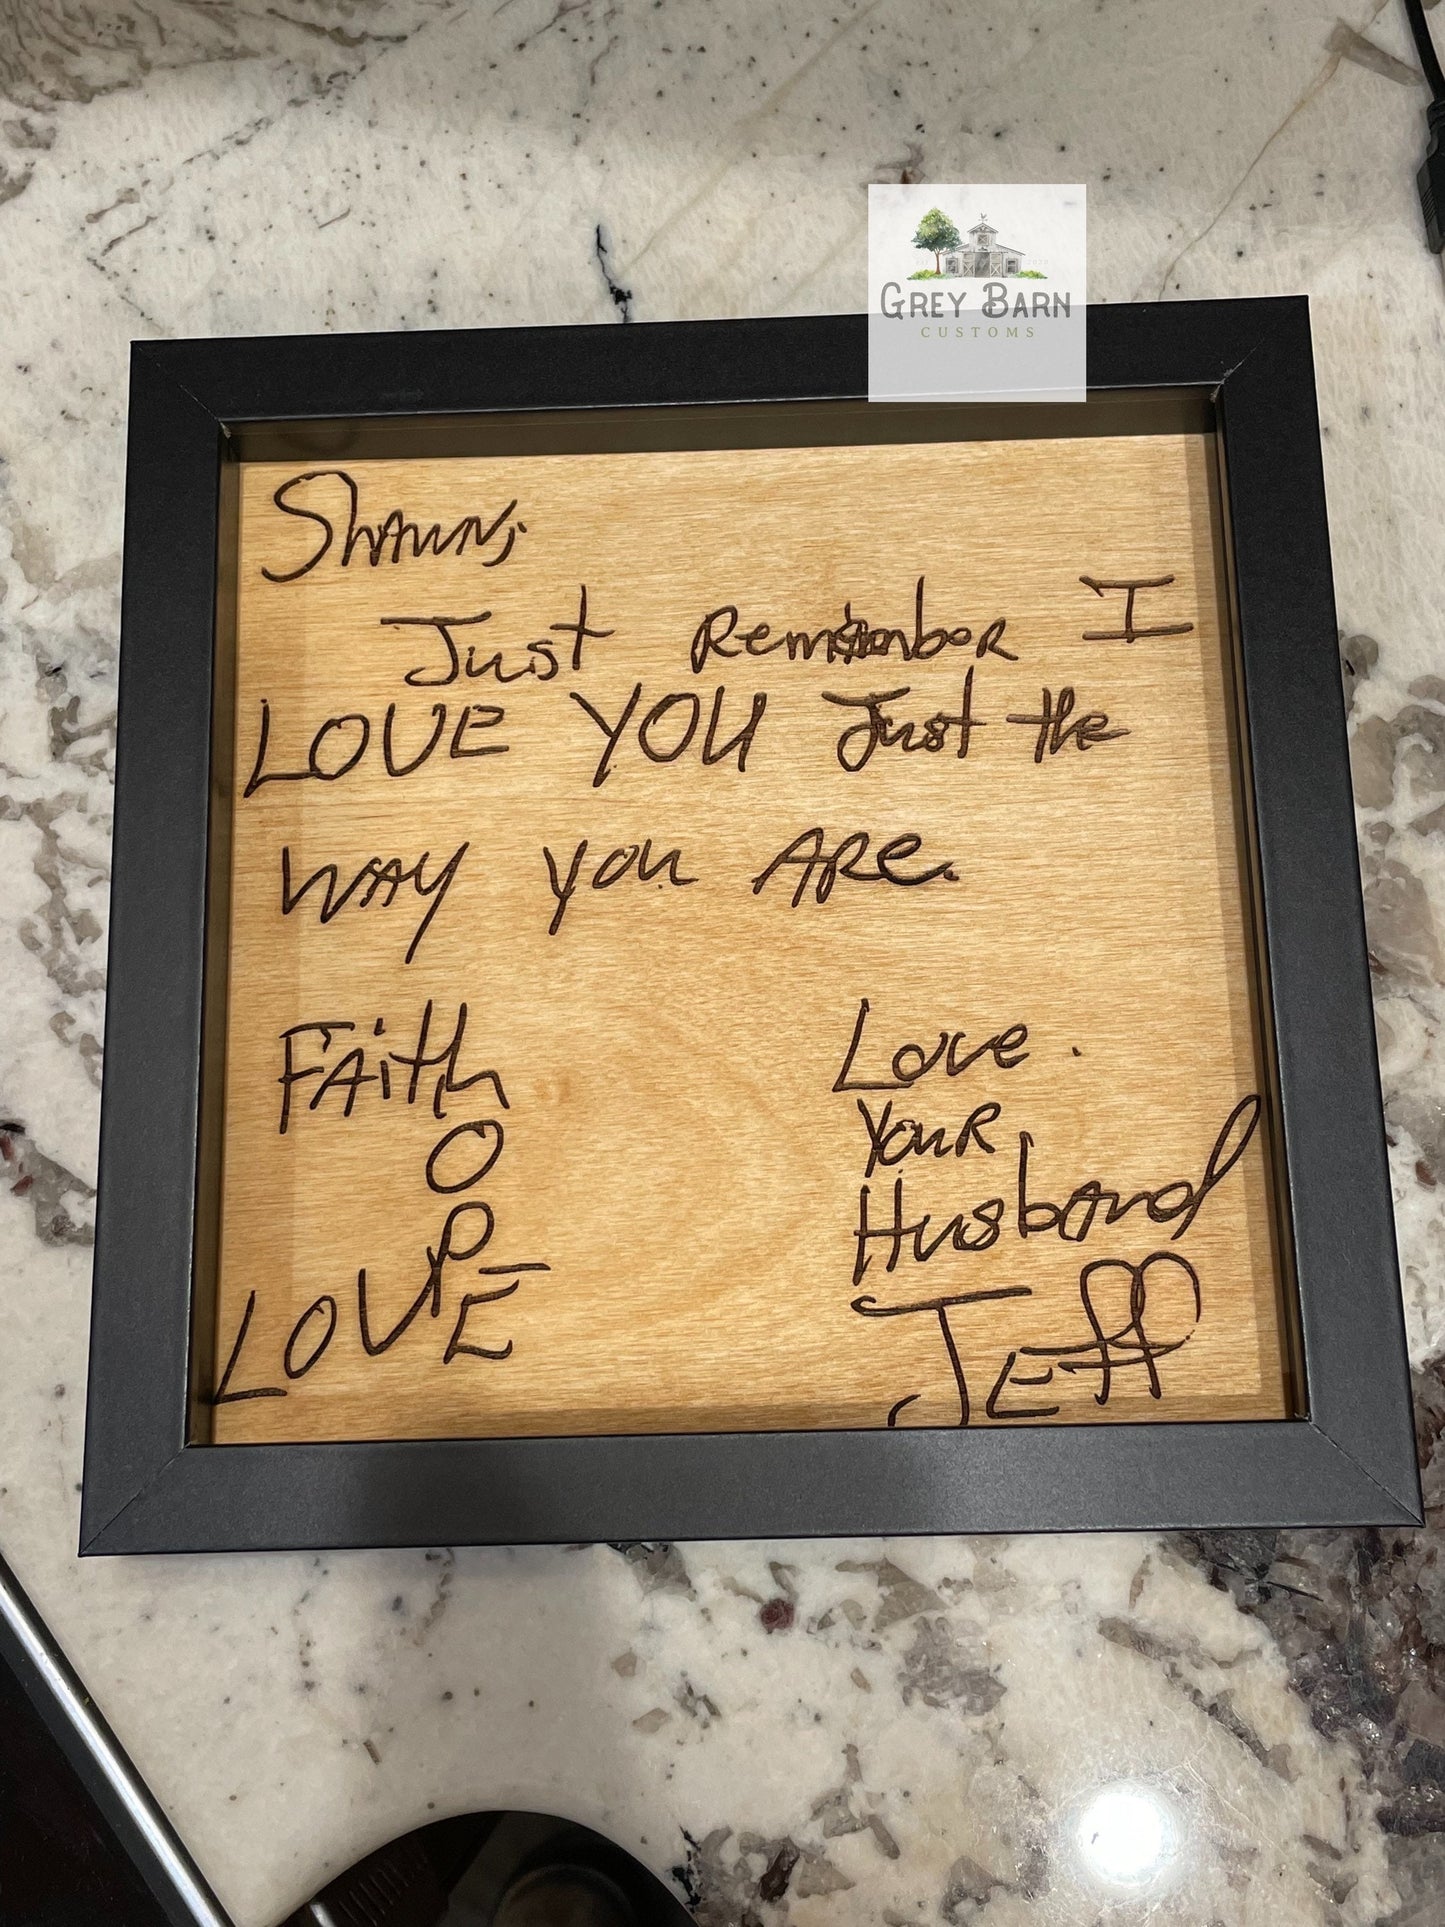 GREY BARN
CUSTOMS
SHAWN,
Just Remember I
LOVE YOU Just the
WAY you ARe.
FAith
O
P
LOVE
Love.
YouR
HusbAnd
JEff